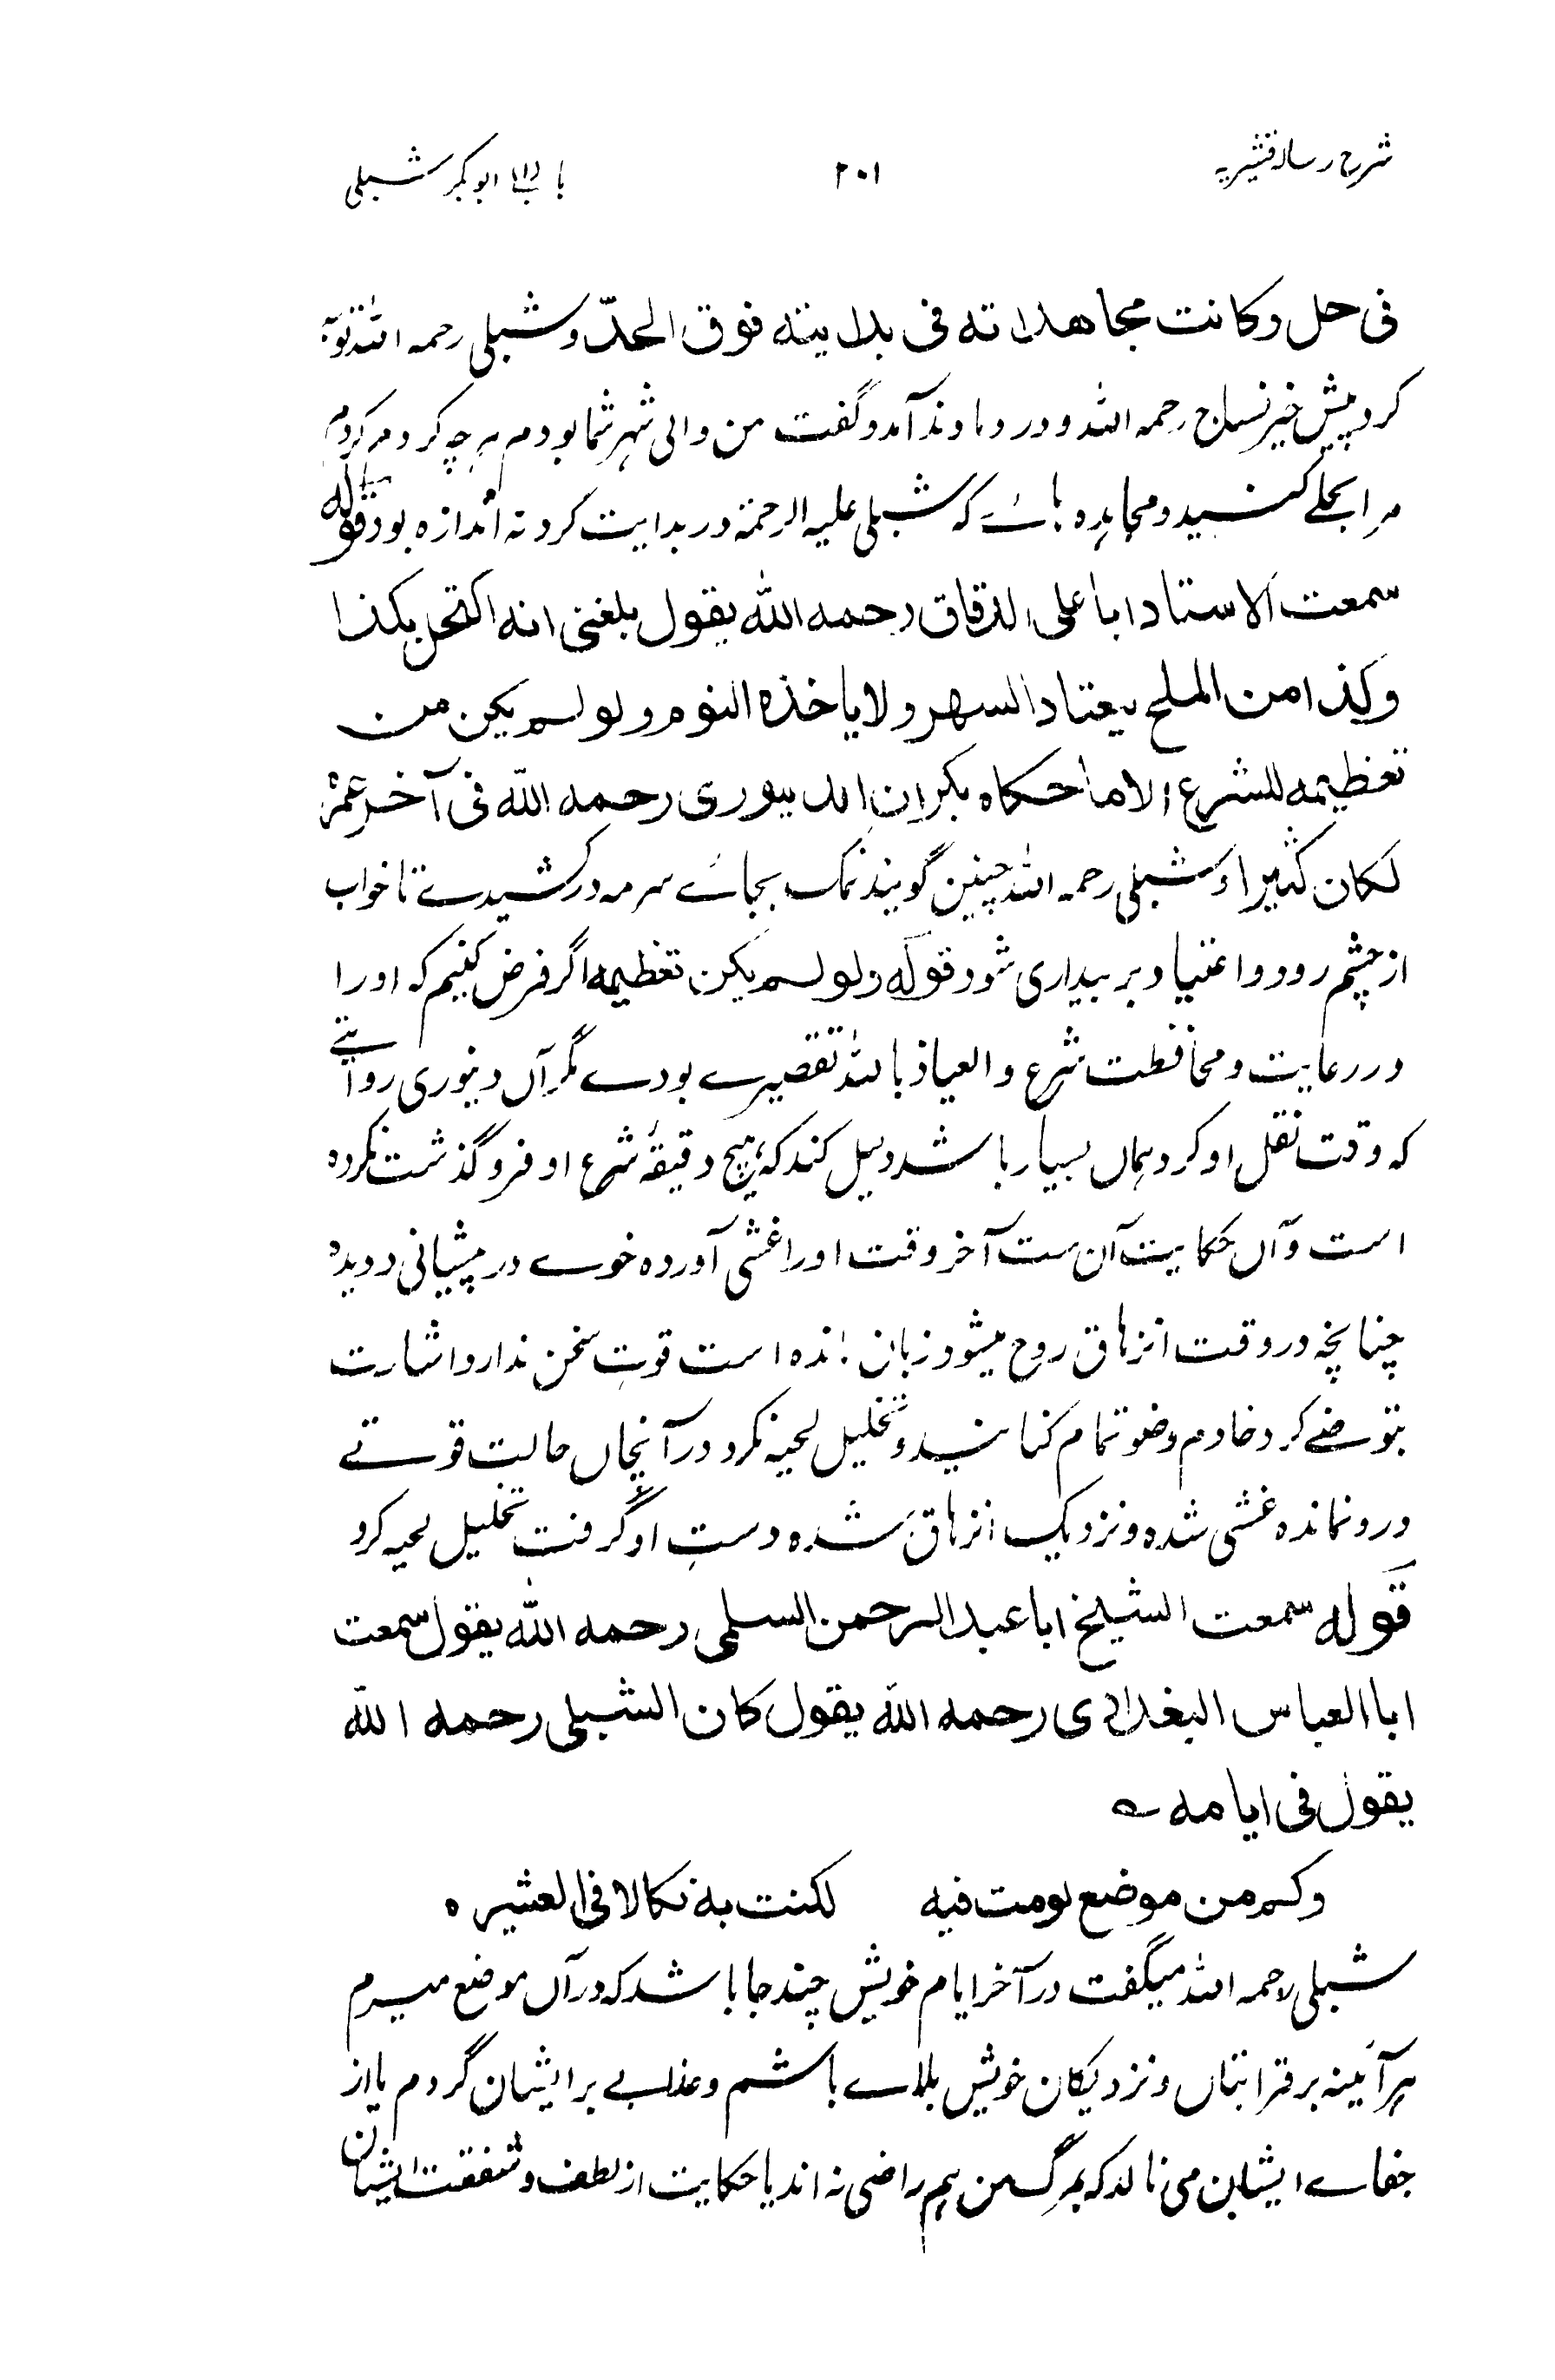 شرح رسالہ قشیریہ ۲۰۱ باب ابوبکر شبلی
فی حل وکانت مجاهداته فی بدایته فوق الحدّ وشبلی رحمہ اللہ توبہ
کرد پیش خیر نساج رحمہ اللہ ودر دماوند آمد وگفت من والی شہر شما بودم ہرچہ کردم کردم
مرا بحلے کنید ومجاہدہ ہائے کہ شبلی علیہ الرحمۃ در بدایت کرد نہ اندازہ بود قوله
سمعت الاستاد ابا علی الدقاق رحمه الله یقول بلغنی انه اکتحل بکذا
وکذا من الملح لیعتاد السهر ولا یاخذه النوم ولو لم یکن من
تعظیمه للشرع الا ما حکاه بکران الدینوری رحمه الله فی آخر عمره
لکان کثیرا وشبلی رحمہ اللہ چنین گویند نمک بجائے سرمہ در کشیدے تا خواب
از چشم رود واعتیاد بر بیداری شود قوله ولو لم یکن تعظیمه اگر فرض کنیم کہ اورا
در رعایت ومحافظت شرع والعیاذ باللہ تقصیرے بودے مگر آں دینوری روایتے
کہ وقت نقل او کرد ہماں بسیار باشد دلیل کند کہ ہیچ دقیقۂ شرع او فروگذشت نکردہ
است وآں حکایت آن ست آخر وقت اورا غشی آوردہ خوے در پیشانی دویدہ
چنانچہ در وقت انزہاق روح میشود زبان ماندہ است قوتِ سخن ندارد اشارت
بتوضے کرد خادم وضو تمام کنانید وتخلیل لحیہ نکرد در آنچاں حالت قوتے
درو نماندہ غشی شدہ ونزدیک انزہاق شدہ دستِ او گرفت تخلیل لحیہ کرد
قوله سمعت الشیخ ابا عبد الرحمن السلمی رحمه الله یقول سمعت
ابا العباس البغدادی رحمه الله یقول کان الشبلی رحمه الله
یقول فی ایامه ؎
وکم من موضع لومت فیه لکنت به نکالا فی العشیره
شبلی رحمہ اللہ میگفت در آخر ایام خویش چند جا باشد کہ در آں موضع میرم
ہر آئینہ بر قرابتاں ونزدیکان خویش بلاے باشم وعذابے بر ایشان گردم یا از
جفاے ایشان می نالد کہ بمرگ من ہم راضی نہ اند یا حکایت از لطف وشفقت ایشان